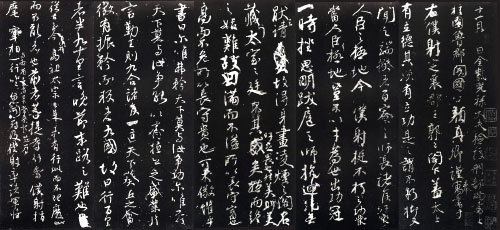 十一月日金紫光祿大夫檢校刑部尚書上
柱國魯郡開國公顏真卿謹奉書于
右僕射定襄郡王郭公閣下蓋太上
有立德其次有立功是之謂不朽抑又
聞之端揆者百寮之師長諸侯王者
人臣之極地今僕射挺不朽之功業
當人臣極地豈不以才為世出功冠
一時挫思明跋扈之師抗迴紇無
厭之請故得身畫凌煙之閣名
藏太室之廷吁足畏也然美則美矣而終
之始難故曰滿而不溢所以長守富也
高而不危所以長守貴也可不儆懼乎
書曰爾唯弗矜天下莫與汝爭功爾唯不伐
天下莫與汝爭能以齊桓公之盛業片
言勤王則九合諸侯一匡天下葵丘之會
微有振矜而叛者九國故曰行百里
者半九十里言晚節末路之難也
從古至今暨我高祖太宗已來未有行此而不理廢此
而不亂者也前者菩提寺行香僕射指
麾宰相與